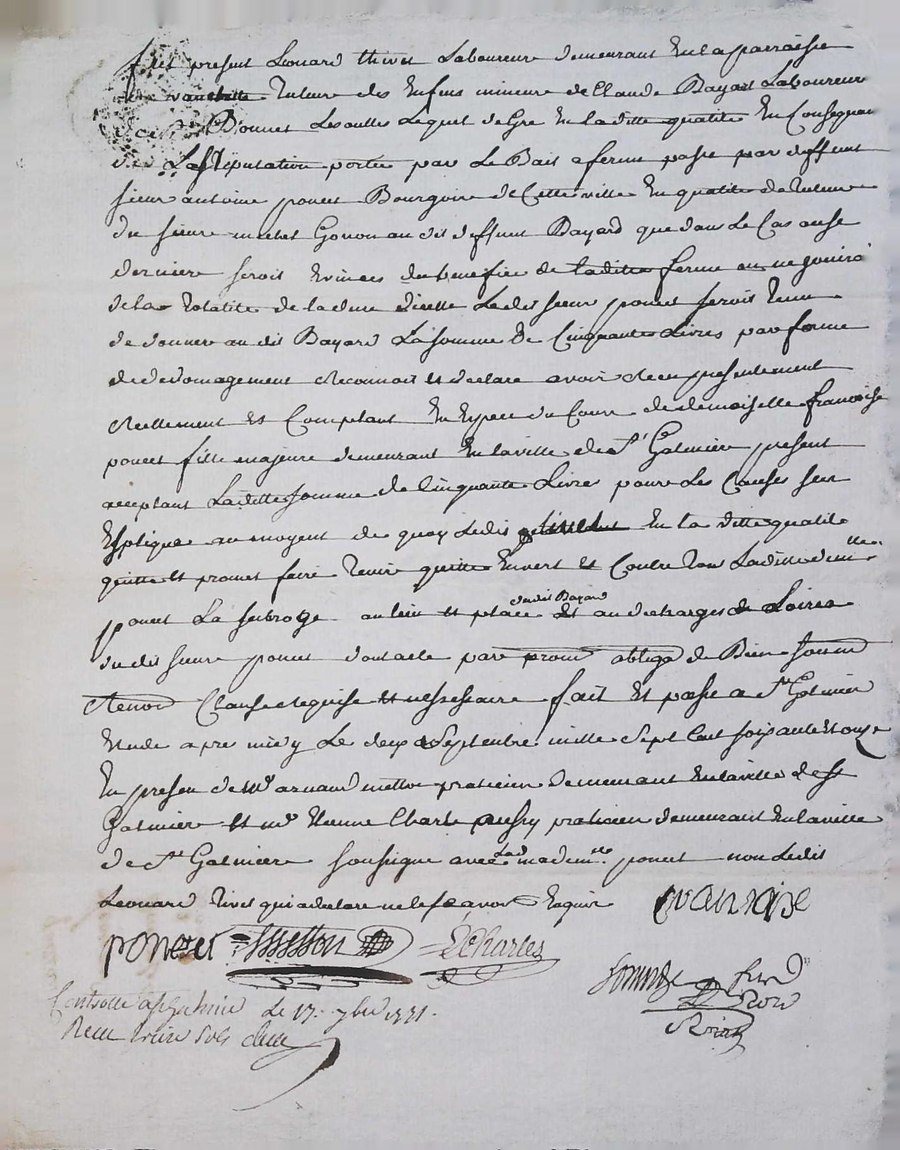 fut present Leonard thivet Laboureur demeurant En la parroisse
Tuteur des Enfens mineur de Claude Bayard Laboureur
Bonnet Lesoulles Lequel de Gre En laditte qualité En Consequan
de La Stipulation portée par Le Bail a ferme passé par deffunt
sieur antoine poncet Bourgoire de Cette ville En qualité de Tuteur
du sieur michel Gonon au dit deffunt Bayard que dans Le Cas ou se
dernier seroit Evincés du benefice de laditte ferme ou ne jouiroi
de la totalité de la dure dicelle Le dit sieur poncet seroit Tenu
de donner au dit Bayard La somme de Cinquante Livres par forme
de dedomagement Reconnoit Et declare avoir Receu presentement
Reellement Et Comptant En Espece du Cours de demoiselle francoise
poncet fille majeure demeurant En la ville de St Galmier present
acceptant Laditte somme de Cinquante Livres pour Les Causes sus
Expliqué au moyent de quoy Ledit En la ditte qualité
quitte Et promet faire Tenir quitte Envert Et Contre Tous Laditte dem.lle
poncet La subroge au lieu Et place dudit Bayard Et au decharges de Loires
du dit sieur poncet dont acte par promt obligé de Bien soumt
Renon Clause Requise Et nessessaire fait Et passé a St Galmier
Etude apre midy Le deux Septembre mille Sept Cent soixante Et onze
En presen de Mr arnaud metton praticien demeurant En la ville de St
Galmier Et mr Etienne Charle praticien demeurant En la ville
de St Galmier soussigne avec Lad madem.lle poncet non Ledit
Leonard Tivet qui a declare ne le scavoir Enquis
francoise
poncet Metton E Charles
Controllé a St Galmier Le 17. 7bre 1771.
Recu treize sols